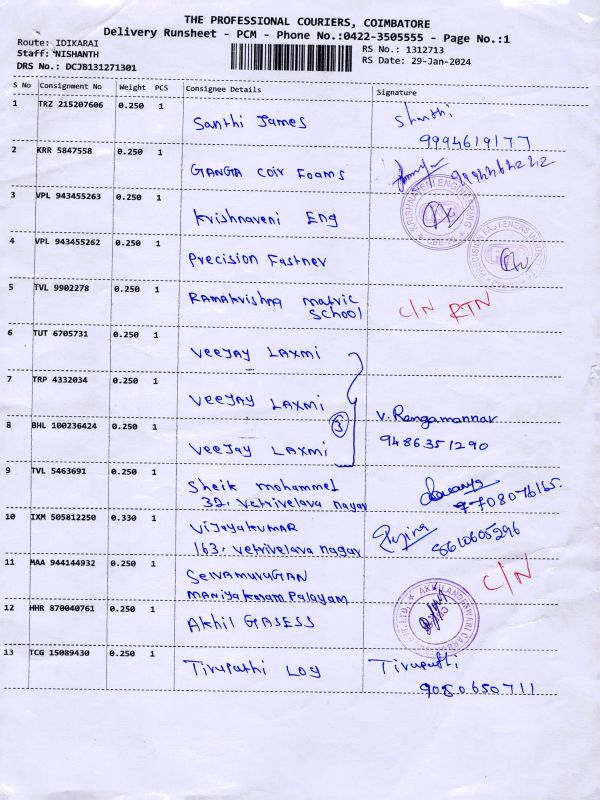 THE PROFESSIONAL COURIERS, COIMBATORE
Delivery Runsheet - PCM - Phone No.:0422-3505555 - Page No.:1
Route: IDIKARAI
RS No.: 1312713
Staff: NISHANTH
RS Date: 29-Jan-2024
DRS No.: DCJB131271301
S No Consignment No Weight PCS Consignee Details Signature
1 TRZ 215207606 0.250 1 Santhi James Shanthi
9994619177
2 KRR 5847558 0.250 1 GANGA Coir Foams
3 VPL 943455263 0.250 1 Krishnaveni Eng
KRISHNAVENI ENGINEERING
4 VPL 943455262 0.250 1 Precision Fastner
PRECISION FASTENERS
5 TVL 9902278 0.250 1 RAMAKrishna matric school C/N RTN
6 TUT 6705731 0.250 1 Veejay LAXMI
7 TRP 4332034 0.250 1 Veejay LAXMI
3 V. Rengamannar
8 BHL 100236424 0.250 1 Veejay LAXMI 9486351290
9 TVL 5463691 0.250 1 Sheik mohammed
32, vetrivelava nagar 7708076165.
10 IXM 505812250 0.330 1 VIJAYAKUMAR
163, vetrivelava nagar 8610605296
11 MAA 944144932 0.250 1 SELVAMURUGAN C/N
Maniyakaram Palayam
12 HHR 870040761 0.250 1 Akhil GASESS
13 TCG 15089430 0.250 1 Tirupathi Log Tirupathi
9080650711